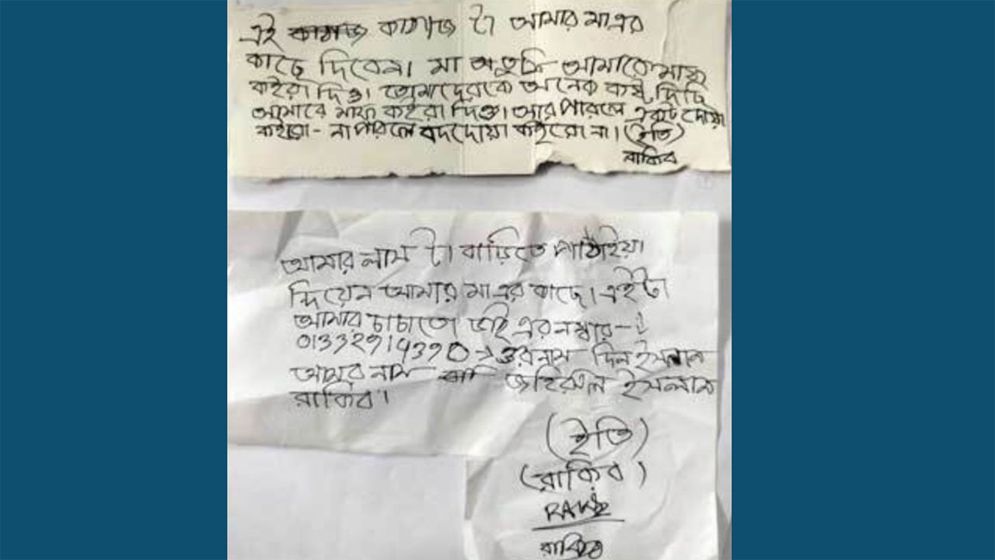 এই কাগজ টা আমার মাএর
কাছে দিবেন। মা তুমি আমারে মাফ
কইরা দিও। তোমাদেরকে অনেক কষ্ট দিছি
আমারে মাফ কইরা দিও। আর পারলে একটু দোয়া
কইরো - না পারলে বদদোয়া কইরো না। (ইতি)
রাকিব
আমার লাস টা বাড়িতে পাঠাইয়া
দিয়েন আমার মাএর কাছে। এইটা
আমার চাচাতো ভাই এর নম্বার-
01332914390 → ওর নাম দিল ইসলাম
আমার নাম জহিরুল ইসলাম
রাকিব।
(ইতি)
(রাকিব)
রাকিব